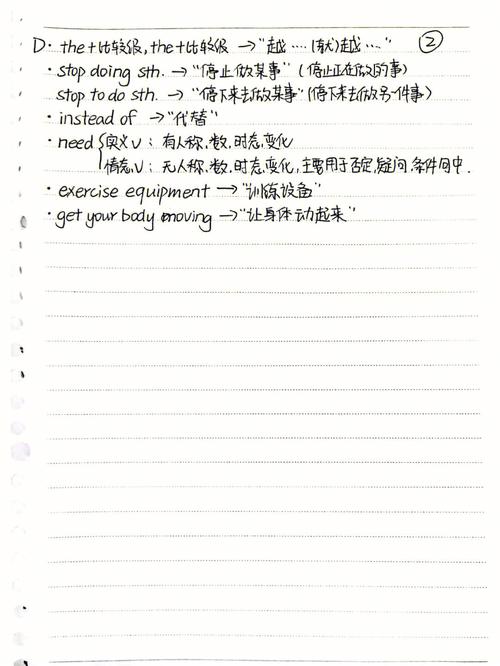 D· the+比较级,the+比较级 →"越……(就)越…" ②
· stop doing sth. →"停止做某事"(停止正在做的事)
stop to do sth. →"停下来去做某事"(停下来去做另一件事)
· instead of →"代替"
· need{实义v: 有人称,数,时态,变化
情态v: 无人称,数,时态,变化,主要用于否定,疑问,条件句中.
· exercise equipment →"训练设备"
· get your body moving →"让身体动起来"